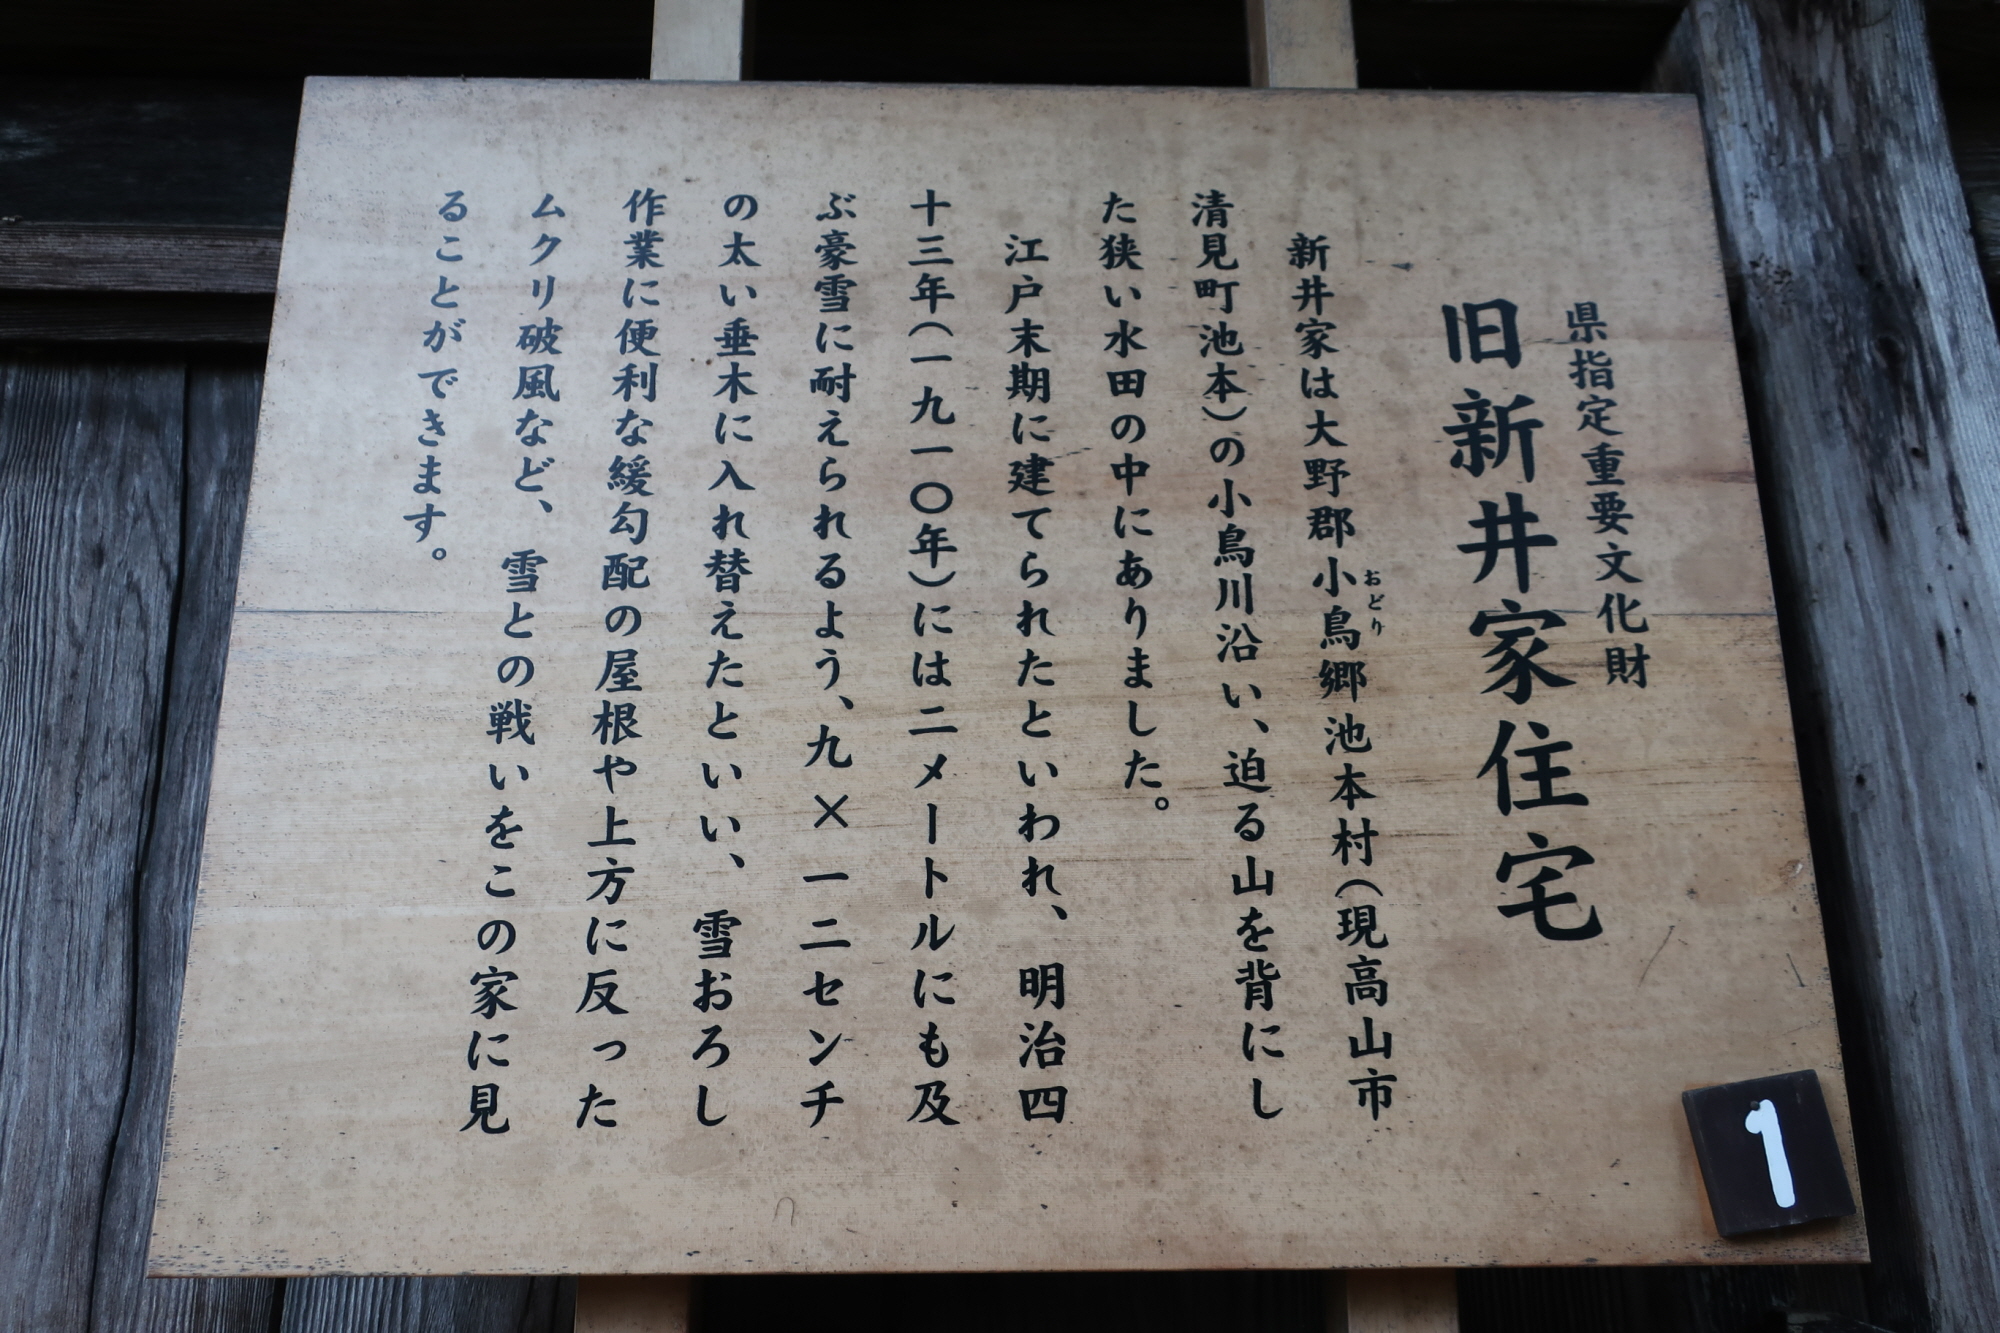 県指定重要文化財
旧新井家住宅
新井家は大野郡小鳥郷池本村(現高山市
おどり
清見町池本)の小鳥川沿い、迫る山を背にし
た狭い水田の中にありました。
江戸末期に建てられたといわれ、明治四
十三年(一九一〇年)には二メートルにも及
ぶ豪雪に耐えられるよう、九×一二センチ
の太い垂木に入れ替えたといい、雪おろし
作業に便利な緩勾配の屋根や上方に反った
ムクリ破風など、雪との戦いをこの家に見
ることができます。
1